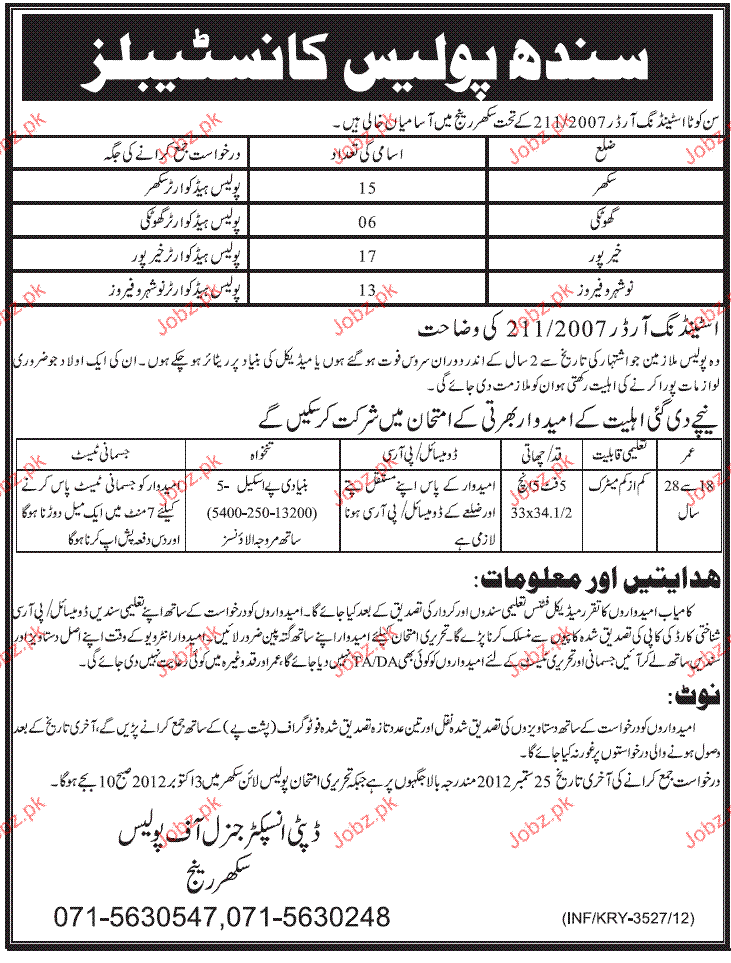 سندھ پولیس کانسٹیبلز
سن کوٹا اسٹینڈنگ آرڈر 211/2007 کے تحت سکھر رینج میں آسامیاں خالی ہیں۔
ضلع	اسامی کی تعداد	درخواست جمع کرانے کی جگہ
سکھر	15	پولیس ہیڈ کوارٹر سکھر
گھوٹکی	06	پولیس ہیڈ کوارٹر گھوٹکی
خیر پور	17	پولیس ہیڈ کوارٹر خیر پور
نوشہرو فیروز	13	پولیس ہیڈ کوارٹر نوشہرو فیروز
اسٹینڈنگ آرڈر 211/2007 کی وضاحت
وہ پولیس ملازمین جو اشتہار کی تاریخ سے 2 سال کے اندر دوران سروس فوت ہو گئے ہوں یا میڈیکل کی بنیاد پر ریٹائر ہو چکے ہوں۔ ان کی ایک اولاد جو ضروری
لوازمات پورا کرنے کی اہلیت رکھتی ہو ان کو ملازمت دی جائے گی۔
نیچے دی گئی اہلیت کے امیدوار بھرتی کے امتحان میں شرکت کر سکیں گے
عمر	تعلیمی قابلیت	قد/چھاتی	ڈومیسائل/پی آر سی	تنخواہ	جسمانی ٹیسٹ
18 سے 28	کم از کم میٹرک	5 فٹ 5 انچ	امیدوار کے پاس اپنے مستقل پتے	بنیادی پے اسکیل -5	امیدوار کو جسمانی ٹیسٹ پاس کرنے
سال	33x34.1/2	اور ضلعے کے ڈومیسائل/پی آر سی ہونا	(5400-250-13200)	کیلئے 7 منٹ میں ایک میل دوڑنا ہوگا
لازمی ہے	ساتھ مروجہ الاؤنسز	اور دس دفعہ پش اپ کرنا ہوگا
ھدایتیں اور معلومات:
کامیاب امیدواروں کا تقرر میڈیکل فٹنس تعلیمی سندوں اور کردار کی تصدیق کے بعد کیا جائے گا۔ امیدواروں کو درخواست کے ساتھ اپنے تعلیمی سندیں ڈومیسائل/پی آر سی
شناختی کارڈ کی کاپی کی تصدیق شدہ کاپیوں سے منسلک کرنا پڑے گا۔ تحریری امتحان کیلئے امیدوار اپنے ساتھ گتہ پین ضرور لائیں۔ امیدوار انٹرویو کے وقت اپنے اصل دستاویز اور
سندیں ساتھ لے کر آئیں جسمانی اور تحریری ٹیسٹ کے لئے امیدواروں کو کوئی بھی TA/DA نہیں دیا جائے گا، عمر اور قد وغیرہ میں کوئی رعایت نہیں دی جائے گی۔
نوٹ:
امیدواروں کو درخواست کے ساتھ دستاویزوں کی تصدیق شدہ نقل اور تین عدد تازہ تصدیق شدہ فوٹو گراف (پشت پے) کے ساتھ جمع کرانے پڑیں گے، آخری تاریخ کے بعد
وصول ہونے والی درخواستوں پر غور نہ کیا جائے گا۔
درخواست جمع کرانے کی آخری تاریخ 25 ستمبر 2012 مندرجہ بالا جگہوں پر ہے جبکہ تحریری امتحان پولیس لائن سکھر میں 3 اکتوبر 2012 صبح 10 بجے ہوگا۔
ڈپٹی انسپکٹر جنرل آف پولیس
سکھر رینج
071-5630547,071-5630248
(INF/KRY-3527/12)
Jobz.pk